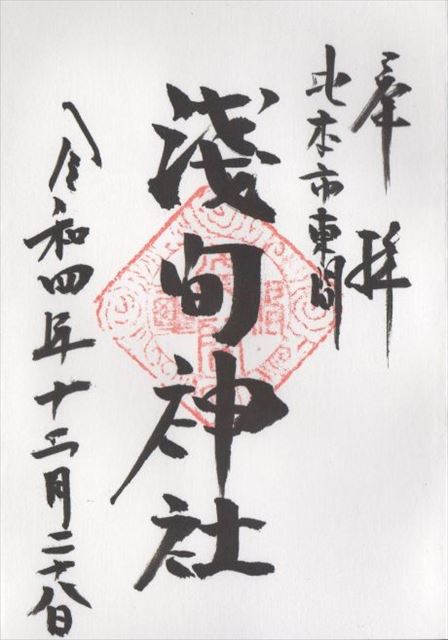 奉拝
北本市東間
淺間神社
令和四年十二月二十八日